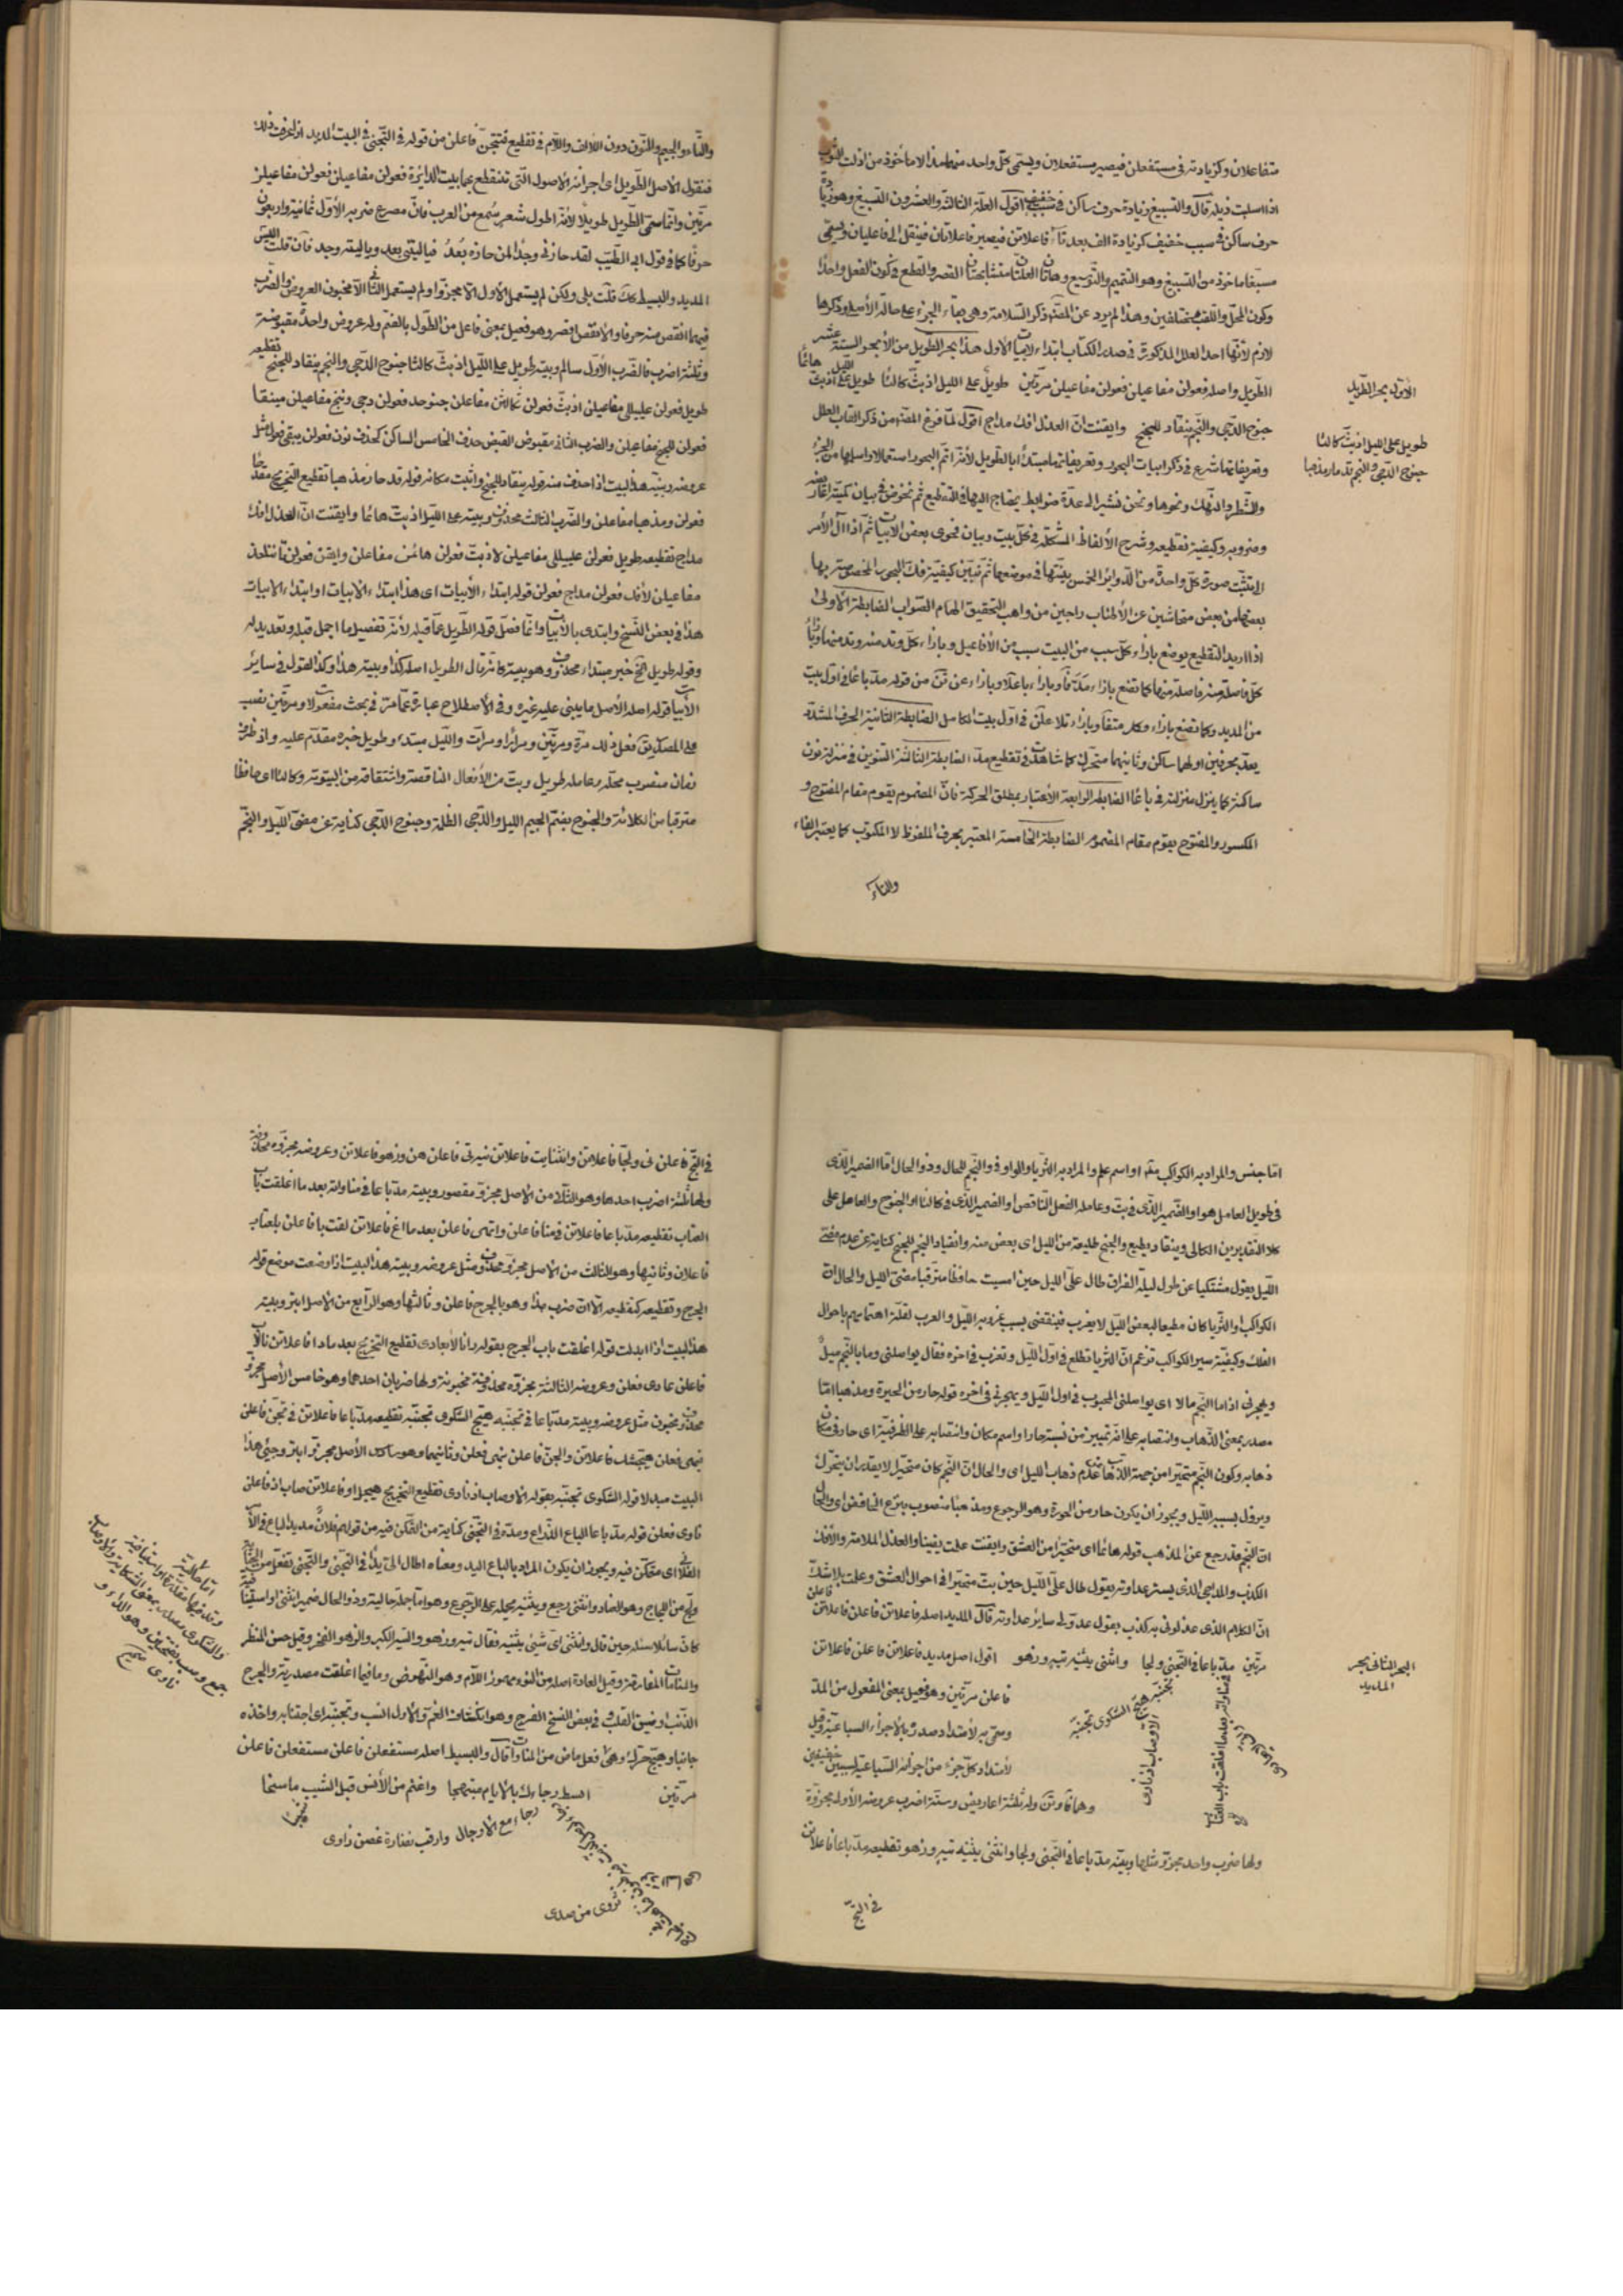 متفاعلان وكزيادته في مستفعلن فيصير مستفعلان ويسمى كل واحد منهما مذالا مأخوذ من اذلت الثوب
اذا اسبلت ذيله قال والتسبيغ زيادة حرف ساكن في سبب خفيف اقول العلة الثالثة والعشرون التسبيغ وهو زيادة
حرف ساكن في سبب خفيف كزيادة الف بعد تاء فاعلاتن فيصير فاعلاتان فينقل الى فاعليان ويسمى
مسبغا مأخوذ من التسبيغ وهو التتميم والتوسيع وهاتان العلتان متشابهتان القصر والقطع في كون الفعل واحدا
وكون المحل واللقب مختلفين وهذا لم يرد عن المصنف ذكر السلامة وهي بقاء الجزء على حالة الأصل وذكرها
لازم لأنها احد العلل المذكورة في صدر الكتاب ابتداء لابيات الاول هذا بحر الطويل من الأبحر الستة عشر
الطويل واصله فعولن مفاعيلن فعولن مفاعيلن مرتين طويل على الليل اذ بت كالئا طويل على الليل اذ بت هائما
جنوح الدجى والنجم ينقاد للجنح وايقنت ان العذل افك مداج اقول لما فرغ المصنف من ذكر القاب العلل
وتعريفاتها شرع في ذكر ابيات البحور وتعريفاتها مبتدأ بالطويل لأنه اتم البحور استعمالا واسلمها من الجزء
والشطر والنهك ونحوها ونحن نشير الى عدة ضوابط يحتاج اليها في التقطيع ثم نخوض في بيان كمية اعاريضه
وضروبه وكيفية تقطيعه وشرح الألفاظ المشكلة في كل بيت وبيان فحوى بعض الابيات ثم اذا آل الأمر
الى تثبت صورة كل واحدة من الدوائر الخمس بيتها في موضعها ثم نبين كيفية فك البحور المخصوصة بها
بعضها من بعض متحاشين عن الأطناب راجين من واهب التحقيق الهام الصواب الضابطة الأولى
اذا اريد التقطيع يوضع بازاء كل سبب من البيت سبب من الأفاعيل وبازاء كل وتد منه وتد منها وبازاء
كل فاصلة منه فاصلة منها كما تضع بازاء
من المديد وكما تضع بازاء في اول بيت الكامل الضابطة الثانية الحرف المشددة
يعد بحرفين اولهما ساكن وثانيهما متحرك كما شاهدت في تقطيع مد الضابطة الثالثة التنوين في منزلة نون
ساكنة كما ينزل منزلته في باعا الضابطة الرابعة الأعتبار بمطلق الحركة فان المضموم يقوم مقام المفتوح و
المكسور والمفتوح يقوم مقام المضموم الضابطة الخامسة المعتبر بحرف الملفوظ لا المكتوب كما يعتبر الفاء
والتاء
الأول بحر الطويل
طويل على الليل اذ بت كالئا
جنوح الدجى والنجم قد حار مذهبا
والتاء والجيم والنون دون الالف واللام في تقطيع فتتجن فاعلن من قوله في التجنى في البيت المديد اذا عرفت ذلك
فنقول الاصل الطويل اى اجزائه الاصول التي تنقطع بها بيت الدائرة فعولن مفاعيلن فعولن مفاعيلن
مرتين وانما سمى الطويل طويلا لأنه اطول شعر سمع من العرب فان مصرع ضربه الأول ثمانية واربعون
حرفا كما في قول ابي الطيب لقد حازنى وجد بمن حازه بعد فيا ليتنى بعد ويا ليته وجد فان قلت اليس
المديد والبسيط كك قلت بلى ولكن لم يستعمل الأول الا مجزوا ولم يستعمل الثانى الا مخبون العروض والضرب
فيهما انقص منه حرفا والانقص اقصر وهو فعيل بمعنى فاعل من الطول بالضم وله عروض واحدة مقبوضة
وثلثة اضرب فالضرب الأول سالم وبيته طويل على الليل اذ بت كالئا جنوح الدجى والنجم ينقاد للجنح تقطيعه
طويل فعولن عليللى مفاعيلن اذ بت فعولن كالئن مفاعلن جنوحد فعولن دجى وننج مفاعيلن مينقا
فعولن للجنح مفاعيلن والضرب الثانى مقبوض القبض حذف الخامس الساكن كحذف نون فعولن يبقى فعول مثل
عروضه وبيته هذا البيت اذا حذفت منه قوله ينقاد للجنح واثبت مكانه قوله قد حار مذهبا تقطيع التخريج مقدحا
فعولن ومذهبا مفاعلن والضرب الثالث محذوف وبيته على الليل اذ بت هائما وايقنت ان العذل افك
مداج تقطيعه طويل فعولن عليللى مفاعيلن لاذبت فعولن هائمن مفاعلن وايقن فعولن تأننلعذ
مفاعيلن لأفك فعولن مداج فعولن قوله ابتداء الأبيات اى هذا ابتداء الابيات او ابتداء الابيات
هذا في بعض النسخ وابتدى بالأبيات وانما فصل قوله الطويل عما قبله لأنه تفصيل ما اجمل قبله وتعديد له
وقوله طويل الخ خبر مبتداء محذوف وهو بيته كأنه قال الطويل اصله كذا وبيته هذا وكذا القول في سائر
الأبيات قوله اصله الأصل ما يبنى عليه غيره وفي الأصطلاح عبارة عما مر في بحث مفعولا ومرتين نصب
على المصدرية فعل ذلك مرة ومرتين ومرارا ومرات والليل مبتدء وطويل خبره مقدم عليه واذ ظرف
زمان منصوب محله وعامله طويل وبت من الأفعال الناقصة واشتقاقه من البيتوتة وكالئا اى حافظا
مترقبا من الكلائة والجنوح بضم الجيم الليل والدجى الظلمة وجنوح الدجى كناية عن مضى الليل والنجم
اما جنس والمراد به الكواكب مثمه او اسم علم والمراد به الثريا والواو في والنجم للحال وذو الحال اما الضمير الذى
في طويل العامل هو او الضمير الذى في بت وعامله الفعل الناقص او الضمير الذى في كالئا او الجنوح والعامل على
كلا التقديرين الكالى وينقاد يطيع والجنح طليعة من الليل اى بعض منه وانقياد النجم للجنح كناية عن عدم مضى
الليل يقول مشتكيا عن طول ليلة الفراق طال على الليل حين امسيت حافظا مترقبا مضى الليل والحال ان
الكواكب او الثريا كان مطيعا لبعض الليل لا يغرب فينقضى بسبب غروبه الليل والعرب لقلة اهتمامهم باحوال
الفلك وكيفية سير الكواكب تزعم ان الثريا تطلع في اول الليل وتغرب في اخره فقال يواصلنى وما بالنجم ميل
ويهجرنى اذا ما النجم مالا اى يواصلنى المحبوب في اول الليل ويهجرنى في اخره قوله حار من الحيرة ومذهبا اما
مصدر بمعنى الذهاب وانتصابه على انه تمييز من نسبة حار او اسم مكان وانتصابه على الظرفية اى حار في مكان
ذهابه وكون النجم متحيرا من جهة الذهاب عدم ذهاب الليل اى والحال ان النجم كان متحيرا لا يقدر ان يتحرك
ويزول بسببه الليل ويجوز ان يكون حار من الحورة وهو الرجوع ومذهبا منصوب بنزع الخافض اى والحال
ان النجم قد رجع عن المذهب قوله هائما اى متحيرا من العشق وايقنت علمت يقينا والعذل الملامة والأفك
الكذب والمداجى الذى يستر عداوته يقول طال على الليل حين بت متحيرا في احوال العشق وعلمت بلا شك
ان الكلام الذى عذلونى به كذب بقول عدو لى ساتر عداوته قال المديد اصله فاعلاتن فاعلن فاعلاتن فاعلن
مرتين مد باعا في التجنى ولجا وانثنى يثنيه تيه وزهو اقول اصل مديد فاعلاتن فاعلن فاعلاتن
فاعلن مرتين وهو فعيل بمعنى المفعول من المد
وسمى به لأمتداد صدره بالأجزاء السباعية وقيل
لأمتداد كل جزء من اجزائه السباعية لسببين خفيفين
وهما فا وتن وله ثلثة اعاريض وستة اضرب عروضه الأولى مجزوة
ولها ضرب واحد مجزو مثلها وبيته مد باعا في التجنى ولجا وانثنى يثنيه تيه وزهو تقطيعه مد باعا فاعلاتن
في التج
تجنبه هيج الشكوى تجنبه
الأوصاب اذ نادى
في مناواته بعد ما اغلقت باب العتاب
البحر الثانى بحر
المديد
في التج فاعلن نى ولجا فاعلاتن وانثنايت فاعلاتن نيه تى فاعلن هن وزهو فاعلاتن وعروضه مجزوه محذوفة
ولها ثلثة اضرب احدها وهو الثانى من الاصل مجزو مقصور وبيته مد باعا في مناواته بعد ما اغلقت باب
العتاب تقطيعه مد باعا فاعلاتن فى منا فاعلن واتهى فاعلن بعد ما اغ فاعلاتن لقت با فاعلن بلعتاب
فاعلان وثانيها وهو الثالث من الأصل مجزو محذوف مثل عروضه وبيته هذا البيت اذا وضعت موضع قوله
الجرح وتقطيعه كتقطيعه الا ان ضرب هذا وهو بالجرح فاعلن وثالثها وهو الرابع من الأصل ابتر وبيته
هذا البيت اذا ابدلت قوله اغلقت باب الجرح بقوله دانا لأبعادى تقطيع التخريج بعد ما دا فاعلاتن نالاب
فاعلن عادى فعلن وعروضه الثالثة مجزوه محذوفة مخبونة ولها ضربان احدهما وهو خامس الأصل مجزو
محذوف مخبون مثل عروضه وبيته مد باعا في تجنبه هيج الشكوى تجنبه تقطيعه مد باعا فاعلاتن فى تجن فاعلن
نبهى فعلن هيجشك فاعلاتن والجن فاعلن نبهى فعلن وثانيهما وهو سادس الأصل مجزو ابتر وجئى هذا
البيت مبدلا قوله الشكوى تجنبه بقوله الاوصاب اذ نادى تقطيع التخريج هيجلاو فاعلاتن صاب اذ فاعلن
نادى فعلن قوله مد باعا الباع الذراع ومده في التجنى كناية من التمكن فيه من قولهم فلان مديد الباع في الأمر
الفلانى اى متمكن فيه ويجوز ان يكون المراد بالباع اليد ومعناه اطال الى يدا في التجنى والتجنى تفعل من الجناية
ولج من اللجاج وهو العناد وانثنى رجع ويثنيه يحمله على الرجوع وهو اما جملة حالية وذو الحال ضمير انثنى او استيناف
كان سائلا سئله حين قال وانثنى اى شيئى يثنيه فقال تيه وزهو والتيه الكبر والزهو الفخر وقيل حسن المنظر
والمناوات المفارقة وقيل العادة اصله من النوء مهموز اللام وهو النهوض وما فيما اغلقت مصدرية والجرح
الذنب او ضيق القلب وفي بعض النسخ الفرح وهو انكشاف الغم والاول انسب وتجنبه اى اجتنابه واخذه
جانبا وهيج حركه وهى فعل ماض من المناوات قال والبسيط اصله مستفعلن فاعلن مستفعلن فاعلن
مرتين ابسط رجاءك بالايام مبتهجا واغنم من الأنس قبل الشيب ما سنحا
رجاء مع الأوجال وارقب نضارة غصن زاوى
تروى من صدى
اما حالية
وقد فيها مقدرة او استينافية
والشكوى مصدر بمعنى الشكاية والأوصاب
جمع وصب بفتحتين وهو الداء و
نادى صح